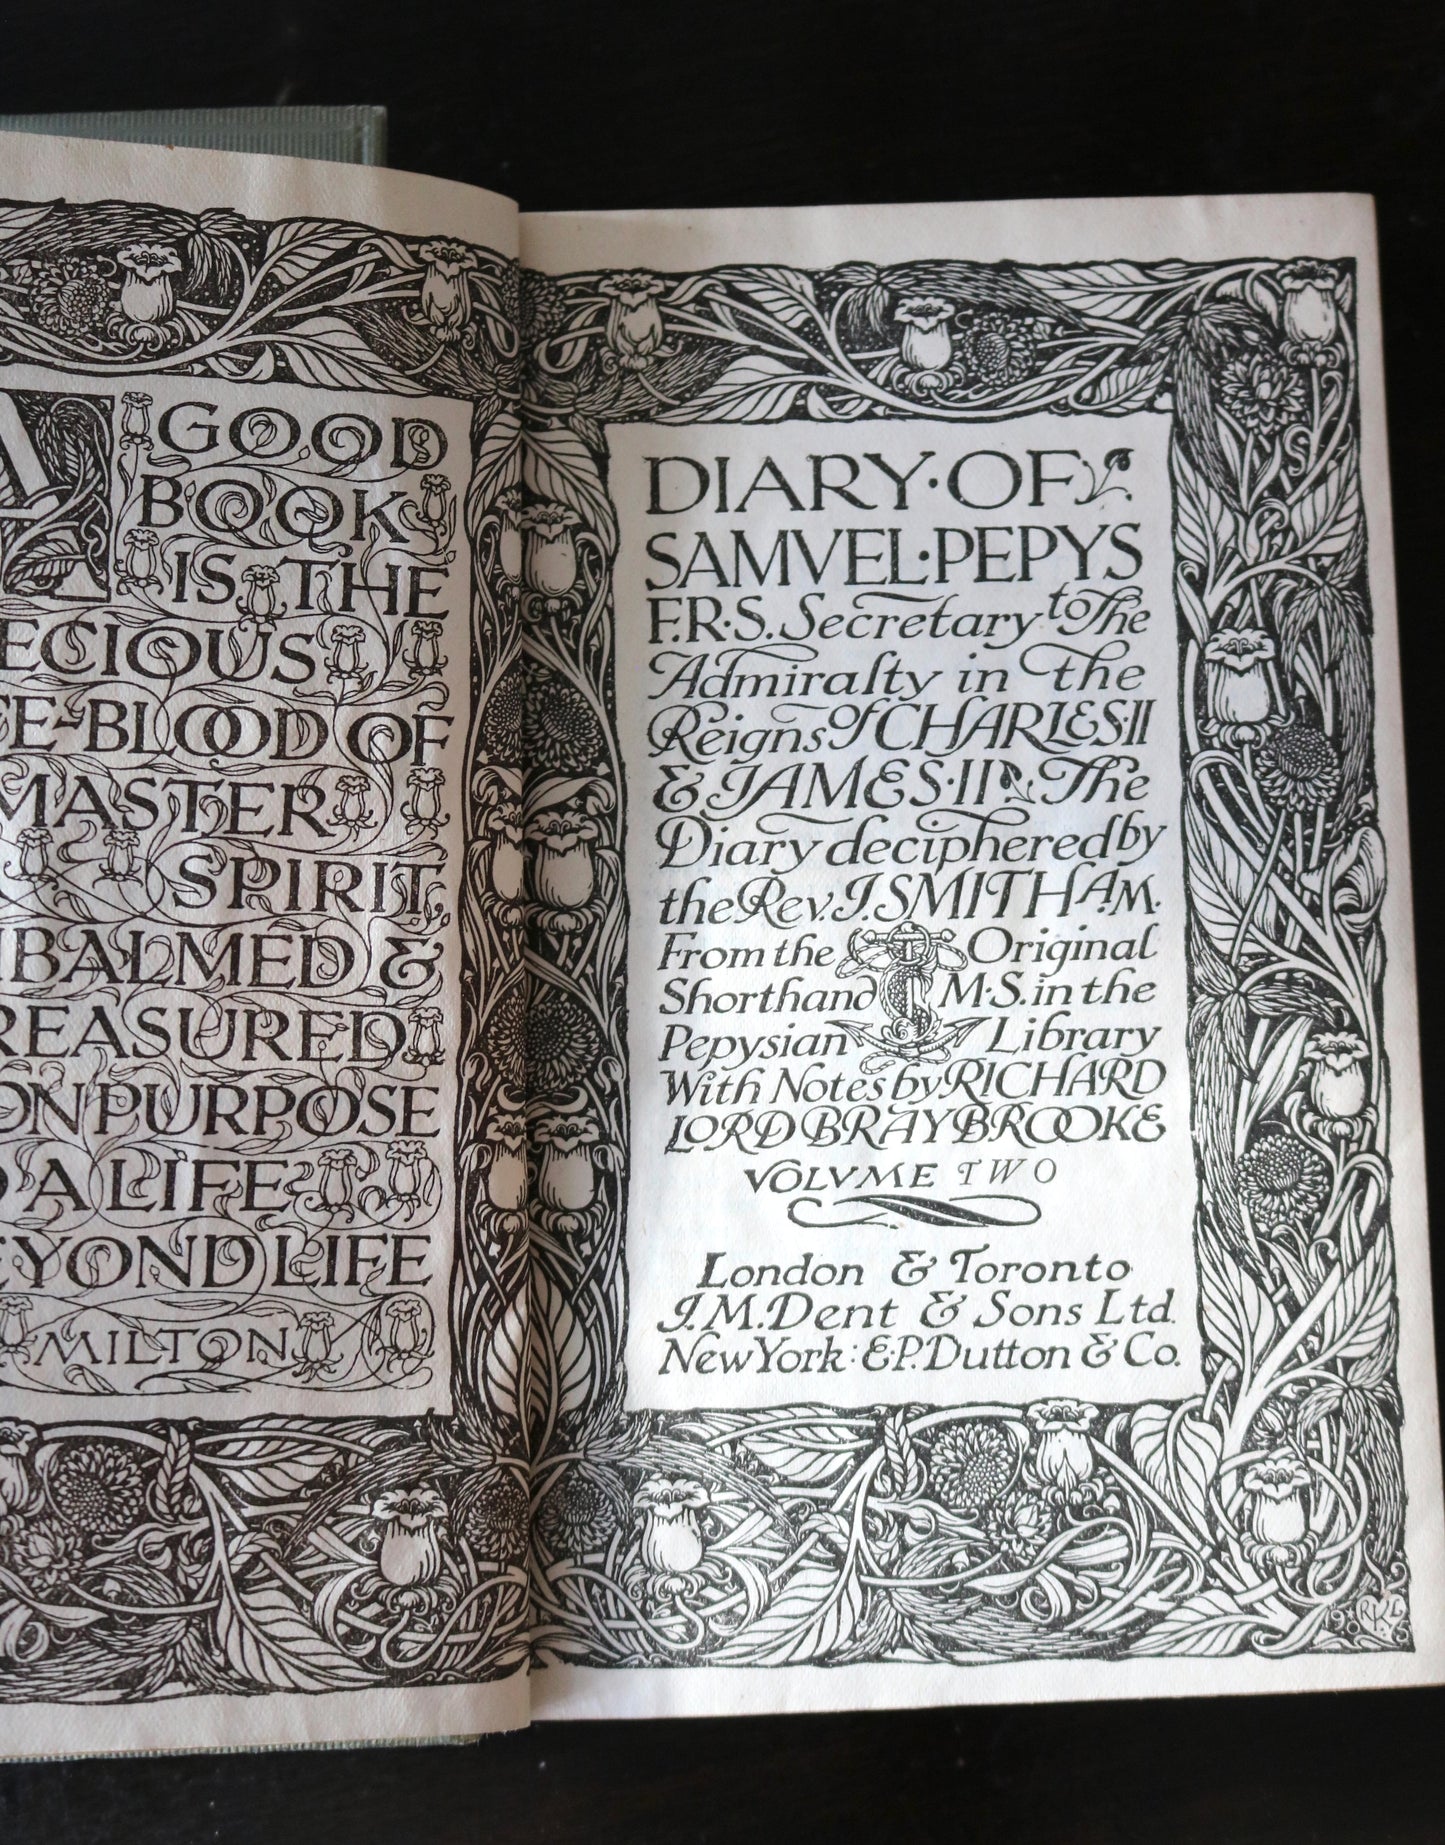 A GOOD
BOOK
IS THE
ECIOUS
FE-BLOOD OF
MASTER
SPIRIT,
BALMED &
REASURED
ON PURPOSE
A LIFE
EYOND LIFE
MILTON
DIARY·OF
SAMVEL·PEPYS
F.R.S. Secretary to The
Admiralty in the
Reigns of CHARLES·II
& JAMES·II: The
Diary deciphered by
the Rev. J. SMITH A.M.
From the Original
Shorthand M·S. in the
Pepysian Library
With Notes by RICHARD
LORD BRAYBROOKE
VOLVME TWO
London & Toronto
J.M. Dent & Sons Ltd.
New York: E·P. Dutton & Co.
RLK
1905